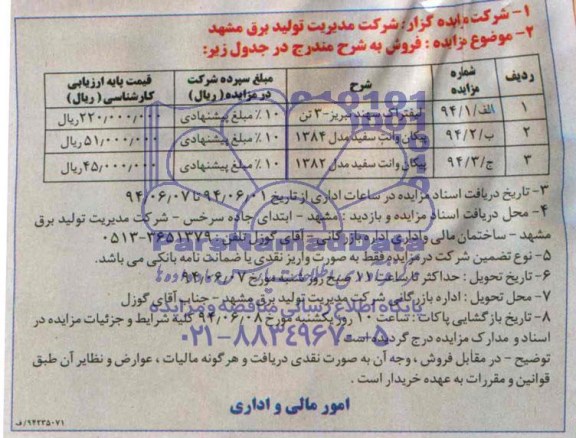 ۱- شرکت مزایده گزار: شرکت مدیریت تولید برق مشهد
۲- موضوع مزایده : فروش به شرح مندرج در جدول زیر:
ردیف شماره مزایده شرح مبلغ سپرده شرکت در مزایده ( ریال) قیمت پایه ارزیابی کارشناسی ( ریال)
۱ الف/۹۴/۱ لیفتراک سهند تبریز-۳ تن ۱۰٪ مبلغ پیشنهادی ۲۲۰,۰۰۰,۰۰۰ریال
۲ ب/۹۴/۲ پیکان وانت سفید مدل ۱۳۸۴ ۱۰٪ مبلغ پیشنهادی ۵۱,۰۰۰,۰۰۰ریال
۳ ج/۹۴/۳ پیکان وانت سفید مدل ۱۳۸۲ ۱۰٪ مبلغ پیشنهادی ۴۵,۰۰۰,۰۰۰ریال
۳- تاریخ دریافت اسناد مزایده در ساعات اداری از تاریخ ۹۴/۰۶/۰۱ تا ۹۴/۰۶/۰۷
۴- محل دریافت اسناد مزایده و بازدید : مشهد - ابتدای جاده سرخس - شرکت مدیریت تولید برق
مشهد - ساختمان مالی و اداری اداره بازرگانی - آقای گوزل تلفن : ۳۶۵۱۳۷۹-۰۵۱۳
۵- نوع تضمین شرکت در مزایده فقط به صورت واریز نقدی یا ضمانت نامه بانکی می باشد.
۶- تاریخ تحویل : حداکثر تا ساعت ۱۱ صبح روز شنبه مورخ ۹۴/۰۶/۰۷
۷- محل تحویل : اداره بازرگانی شرکت مدیریت تولید برق مشهد - جناب آقای گوزل
۸- تاریخ بازگشایی پاکات : ساعت ۱۰ روز یکشنبه مورخ ۹۴/۰۶/۰۸ کلیه شرایط و جزئیات مزایده در
اسناد و مدارک مزایده درج گردیده است
توضیح - در مقابل فروش ، وجه آن به صورت نقدی دریافت و هرگونه مالیات ، عوارض و نظایر آن طبق
قوانین و مقررات به عهده خریدار است .
امور مالی و اداری
۹۴۲۳۵۰۷۱/ف
ParsNamadData
پایگاه اطلاع رسانی مناقصه و مزایده
۰۲۱-۸۸۳۴۹۶۷۰-۵